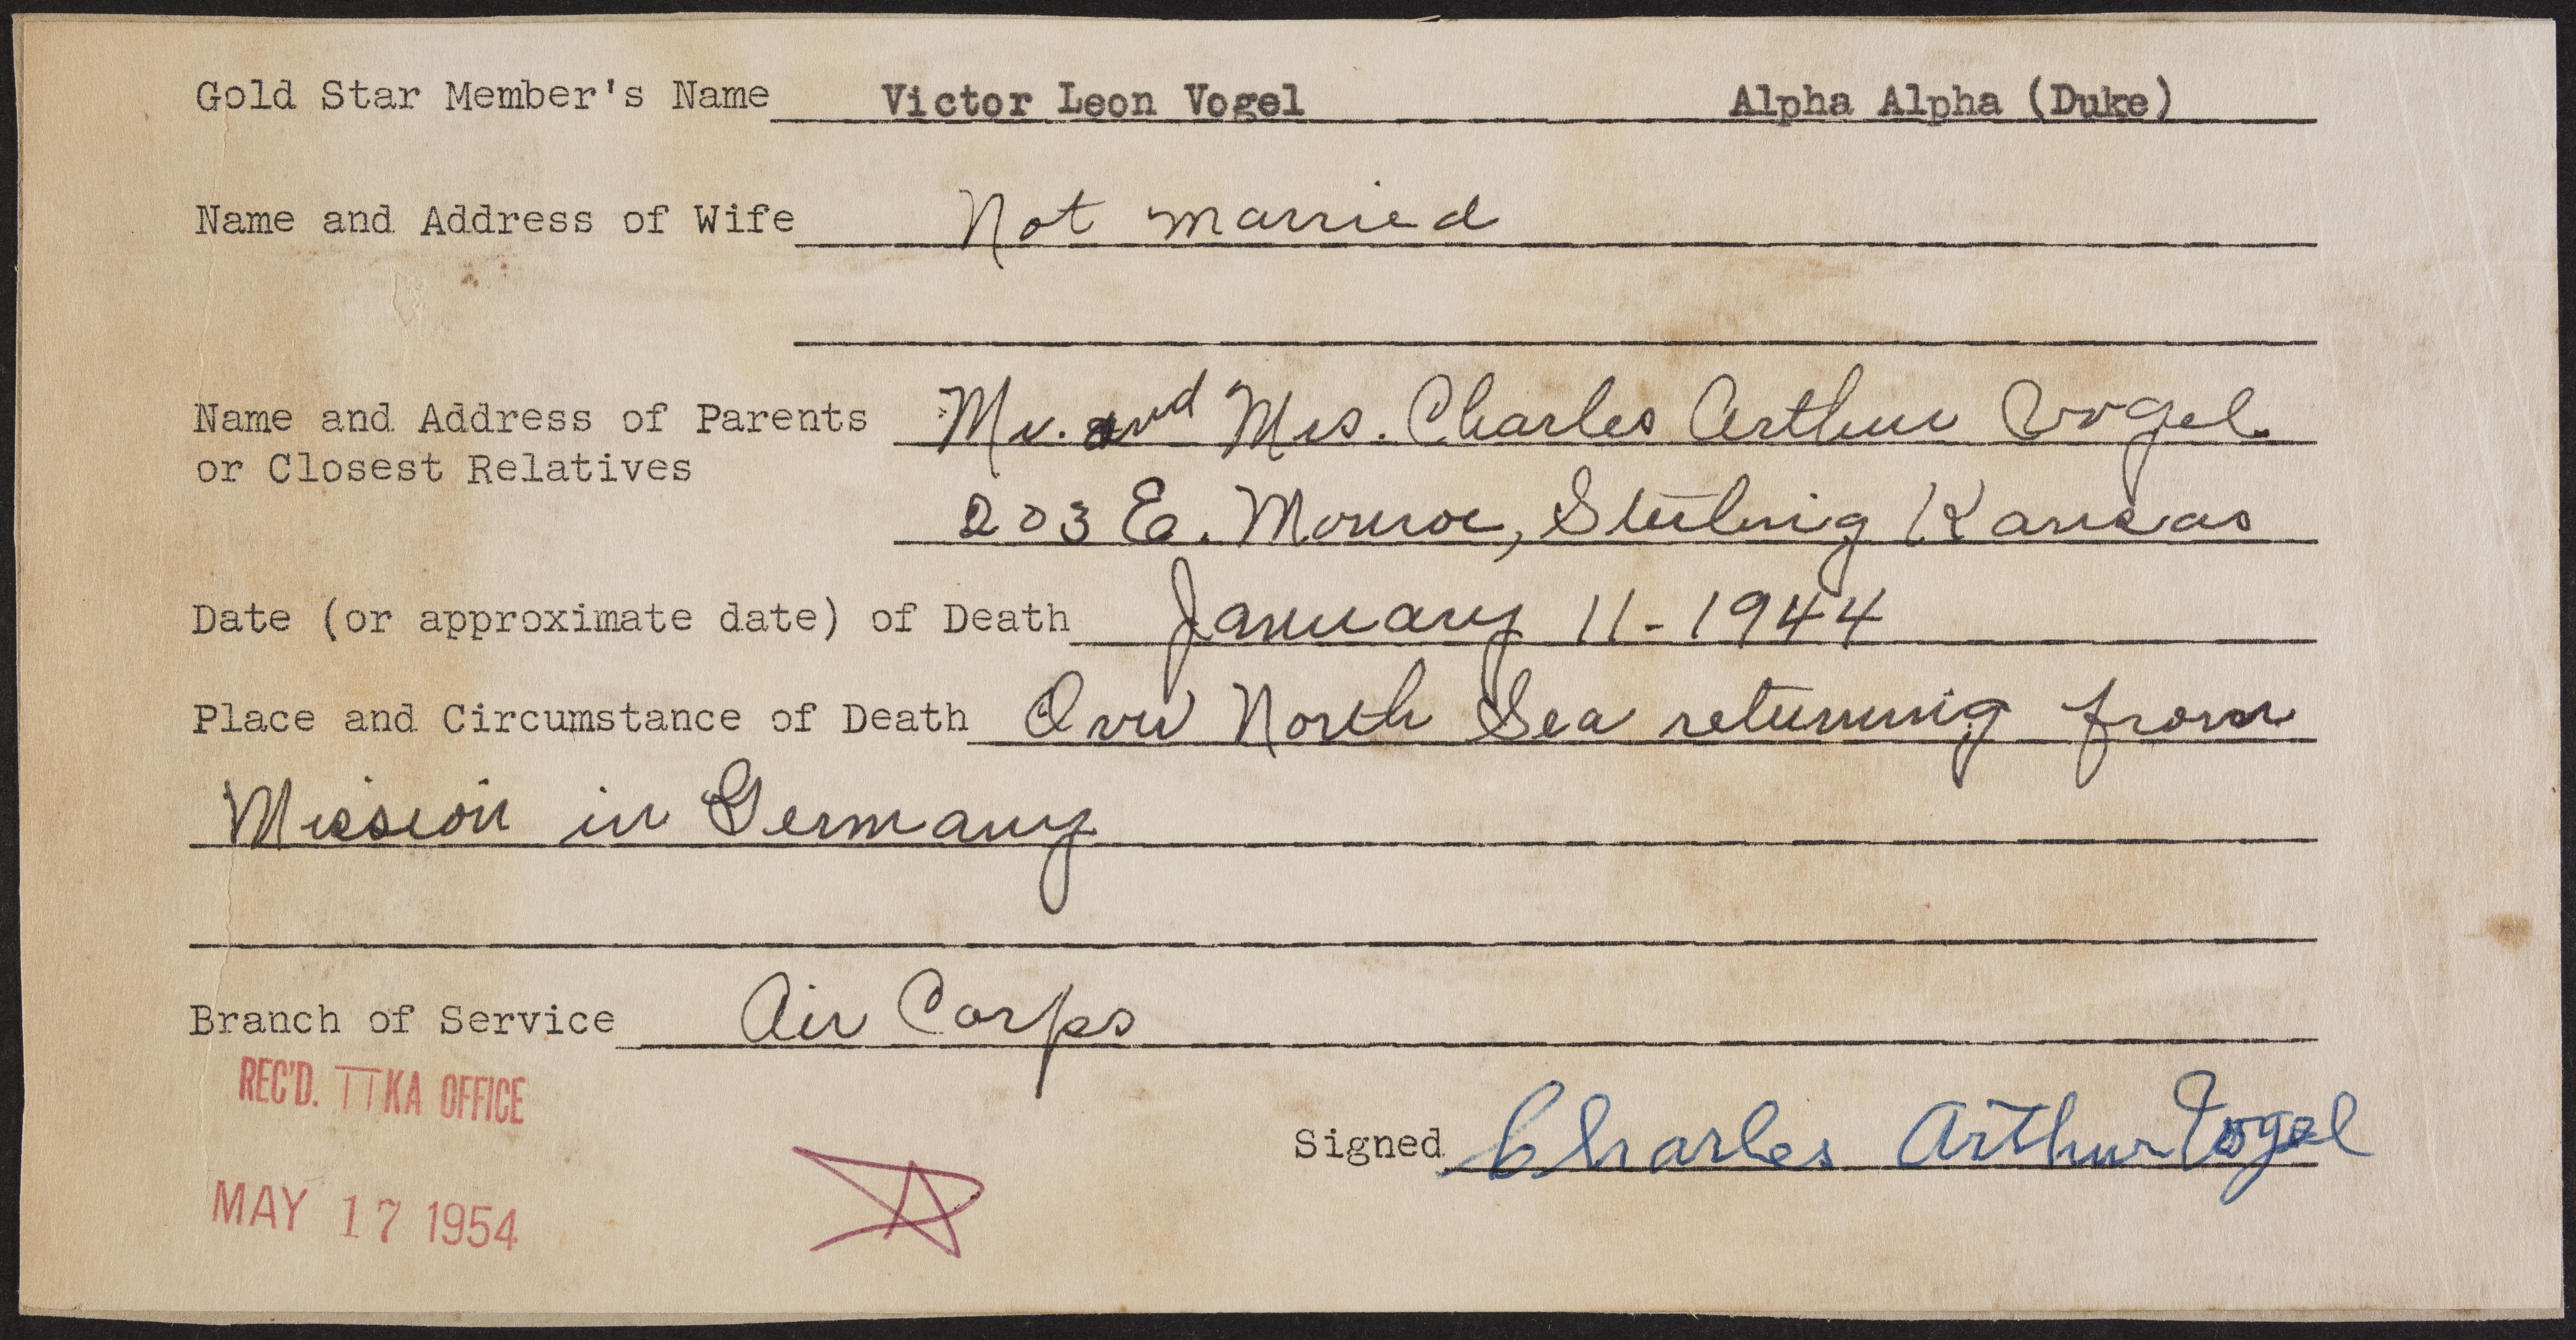 Gold Star Member's Name Victor Leon Vogel Alpha Alpha (Duke)
Name and Address of Wife Not married
Name and Address of Parents Mr. and Mrs. Charles Arthur Vogel
or Closest Relatives
203 E. Monroe, Sterling Kansas
Date (or approximate date) of Death January 11-1944
Place and Circumstance of Death Over North Sea returning from
Mission in Germany
Branch of Service Air Corps
REC'D. ΠKA OFFICE
Signed Charles Arthur Vogel
MAY 17 1954